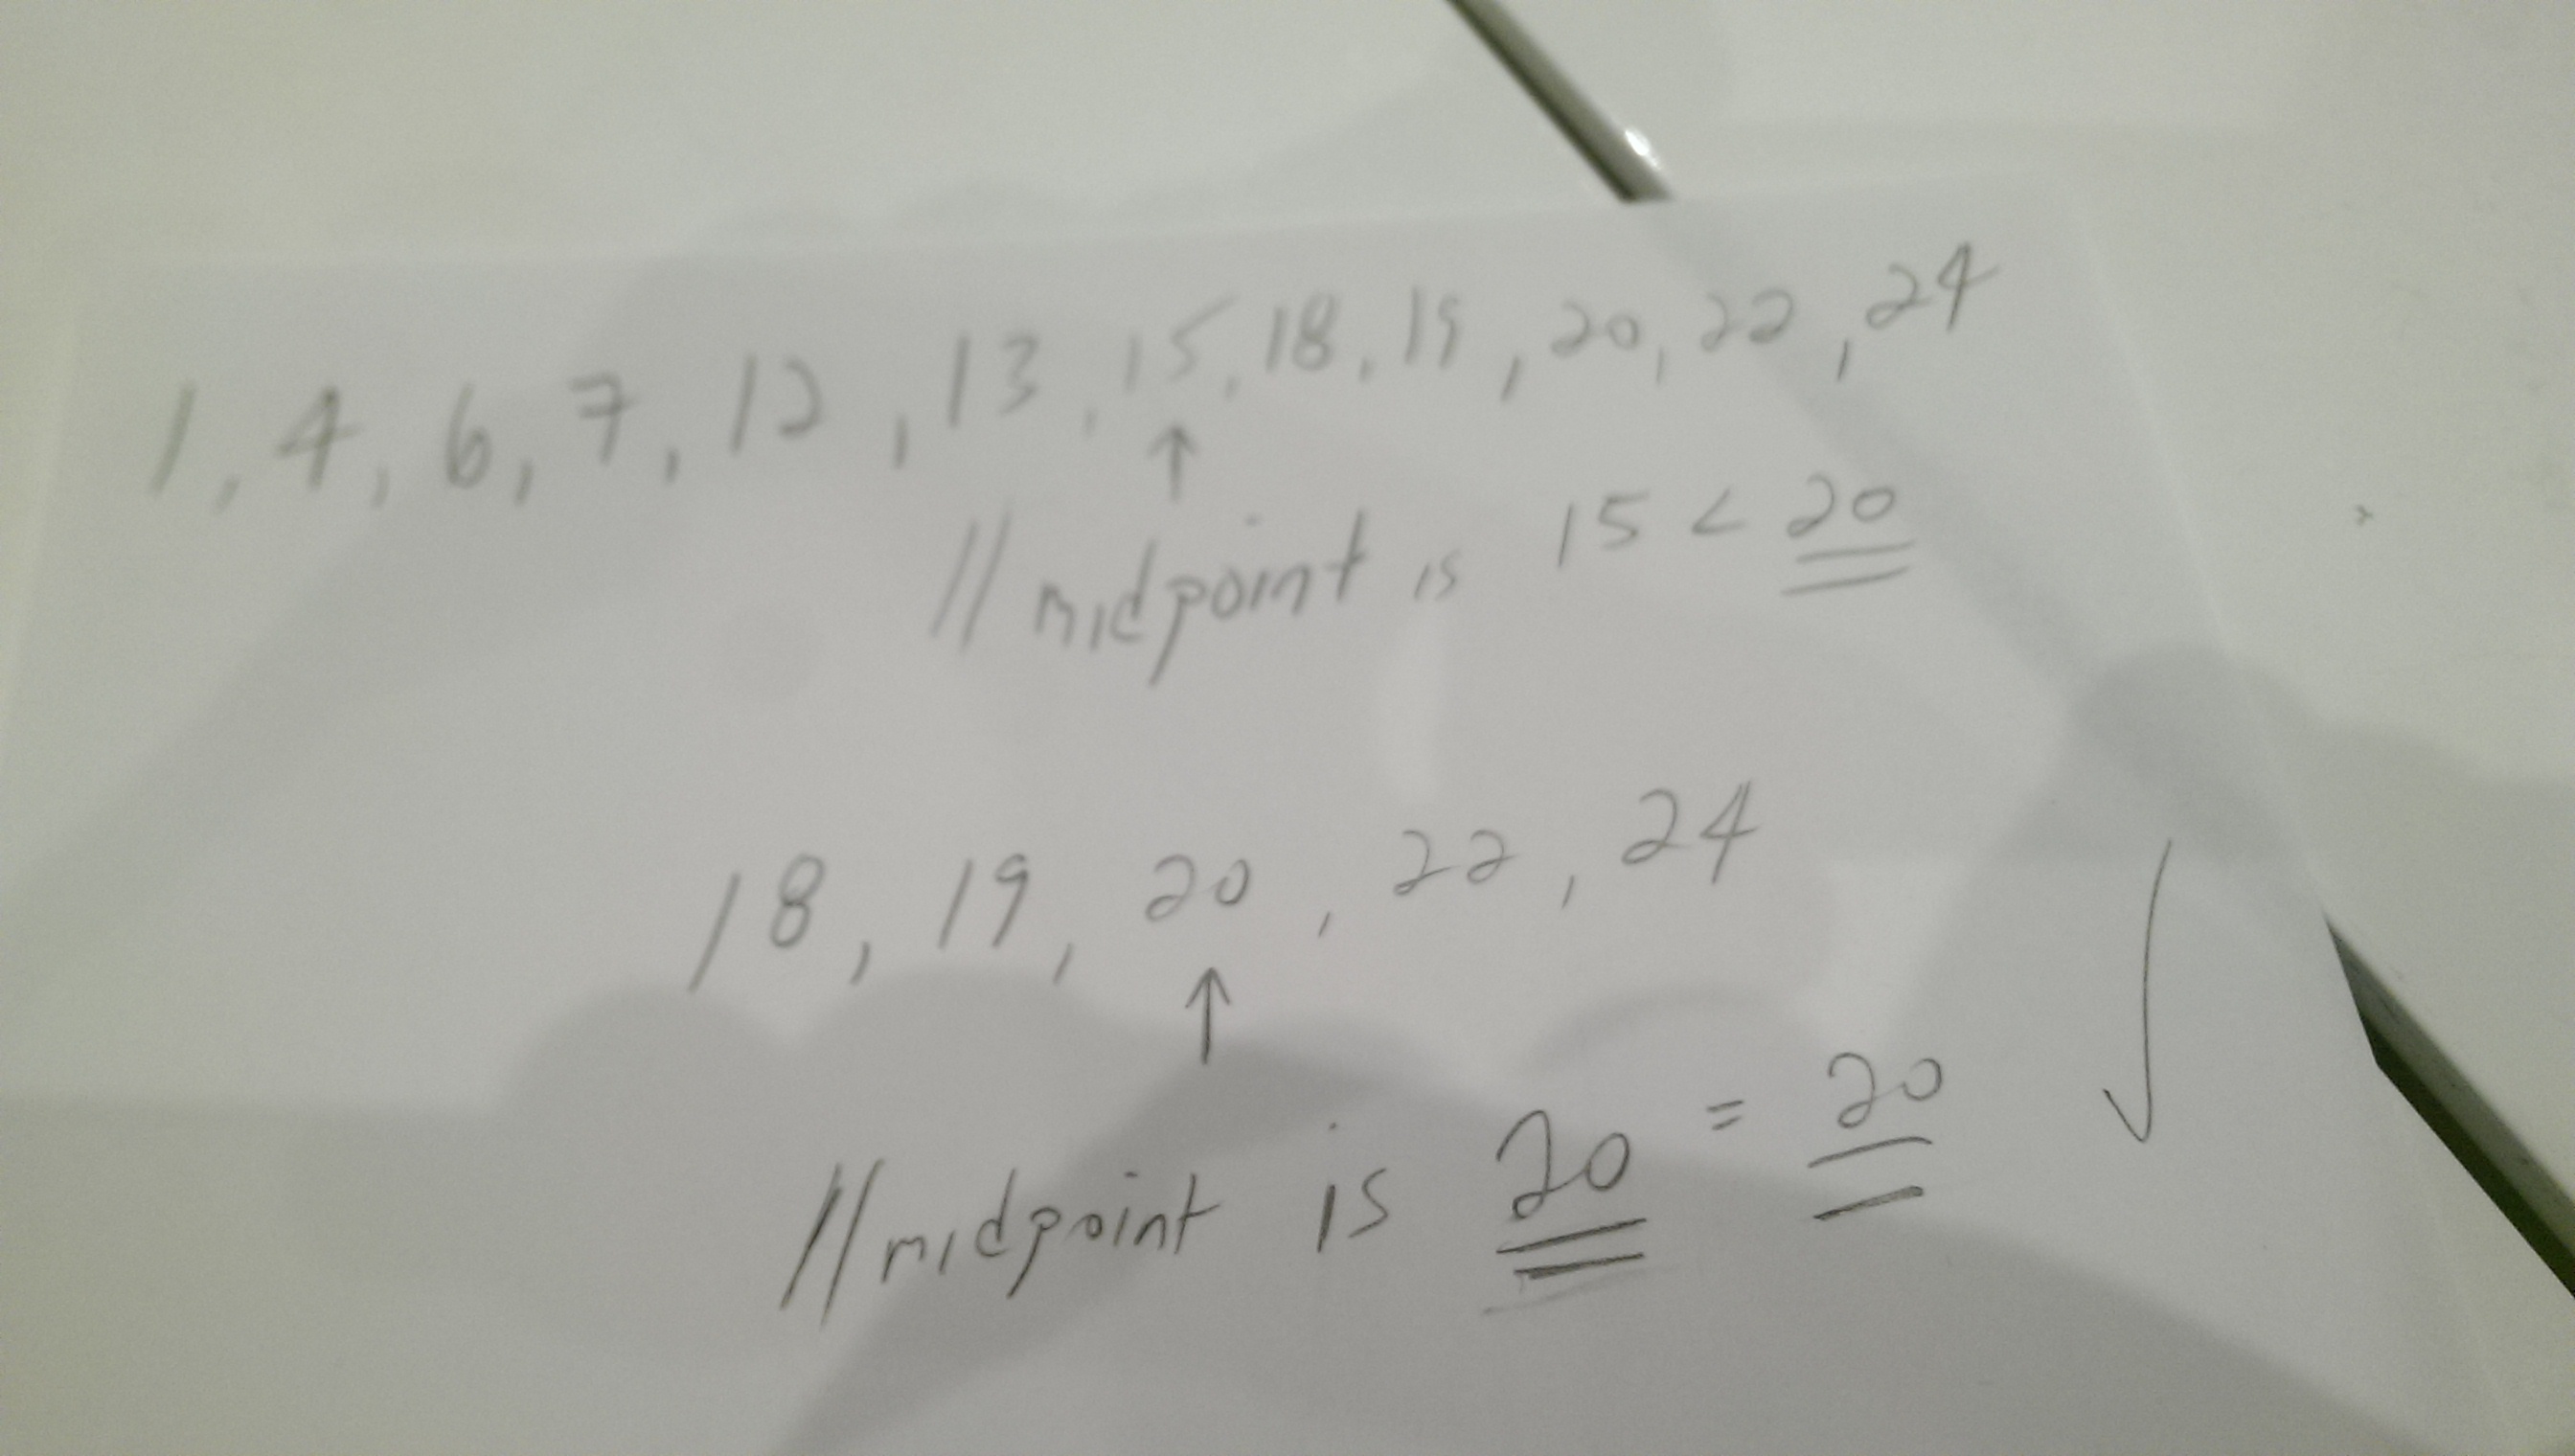 1, 4, 6, 7, 12, 13, 15, 18, 19, 20, 22, 24
↑
// midpoint is 15 < 20
18, 19, 20, 22, 24
↑
// midpoint is 20 = 20 ✓